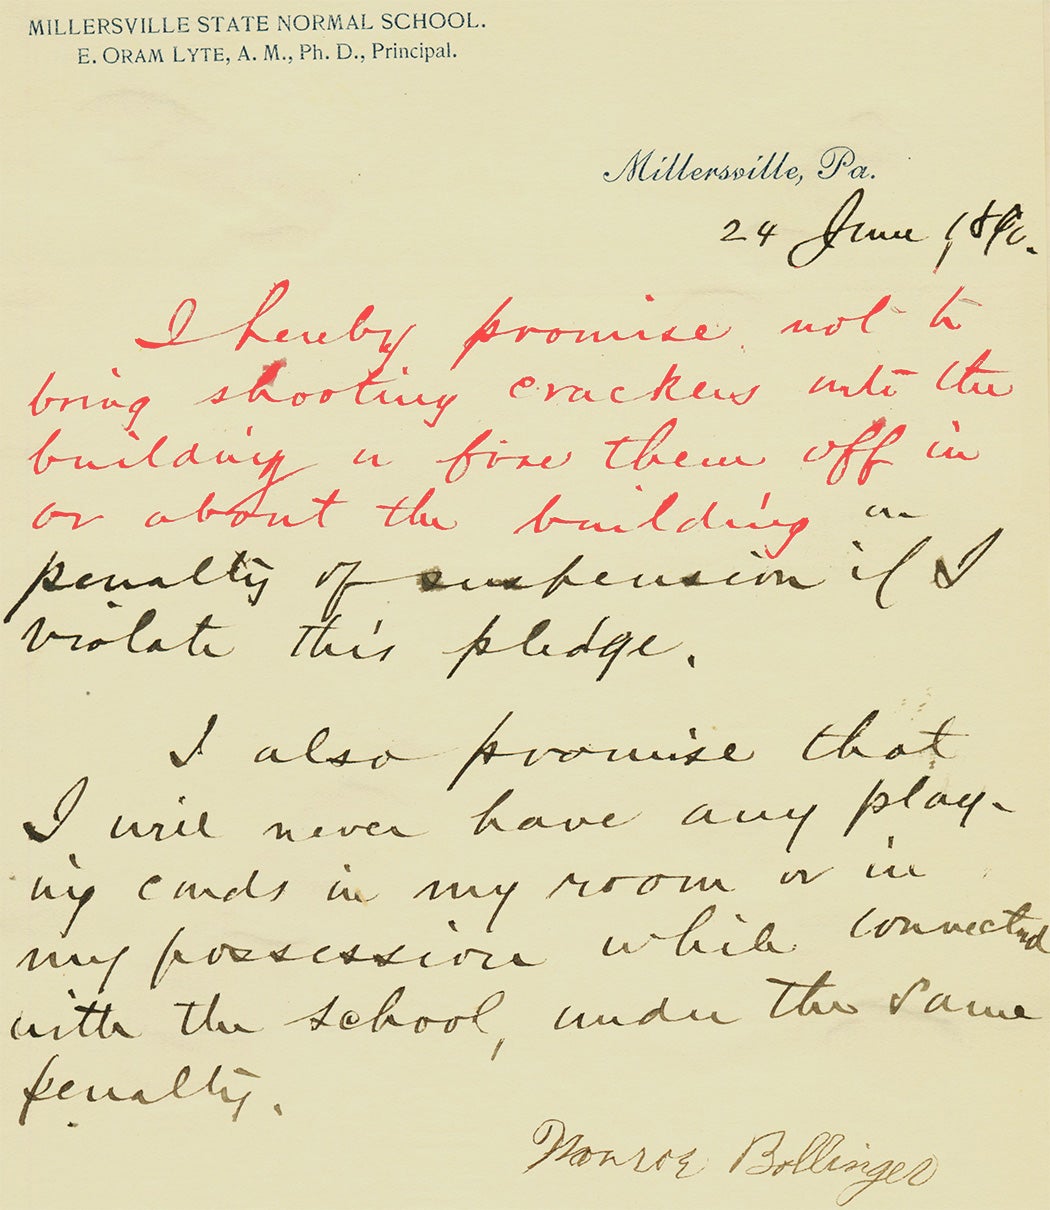 MILLERSVILLE STATE NORMAL SCHOOL.
E. ORAM LYTE, A. M., Ph. D., Principal.
Millersville, Pa.
24 June, 1890.
I hereby promise not to
bring shooting crackers into the
building or fire them off in
or about the building on
penalty of suspension if I
violate this pledge.
I also promise that
I will never have any play-
ing cards in my room or in
my possession while connected
with the school, under the same
penalty.
Monroe Bollinger